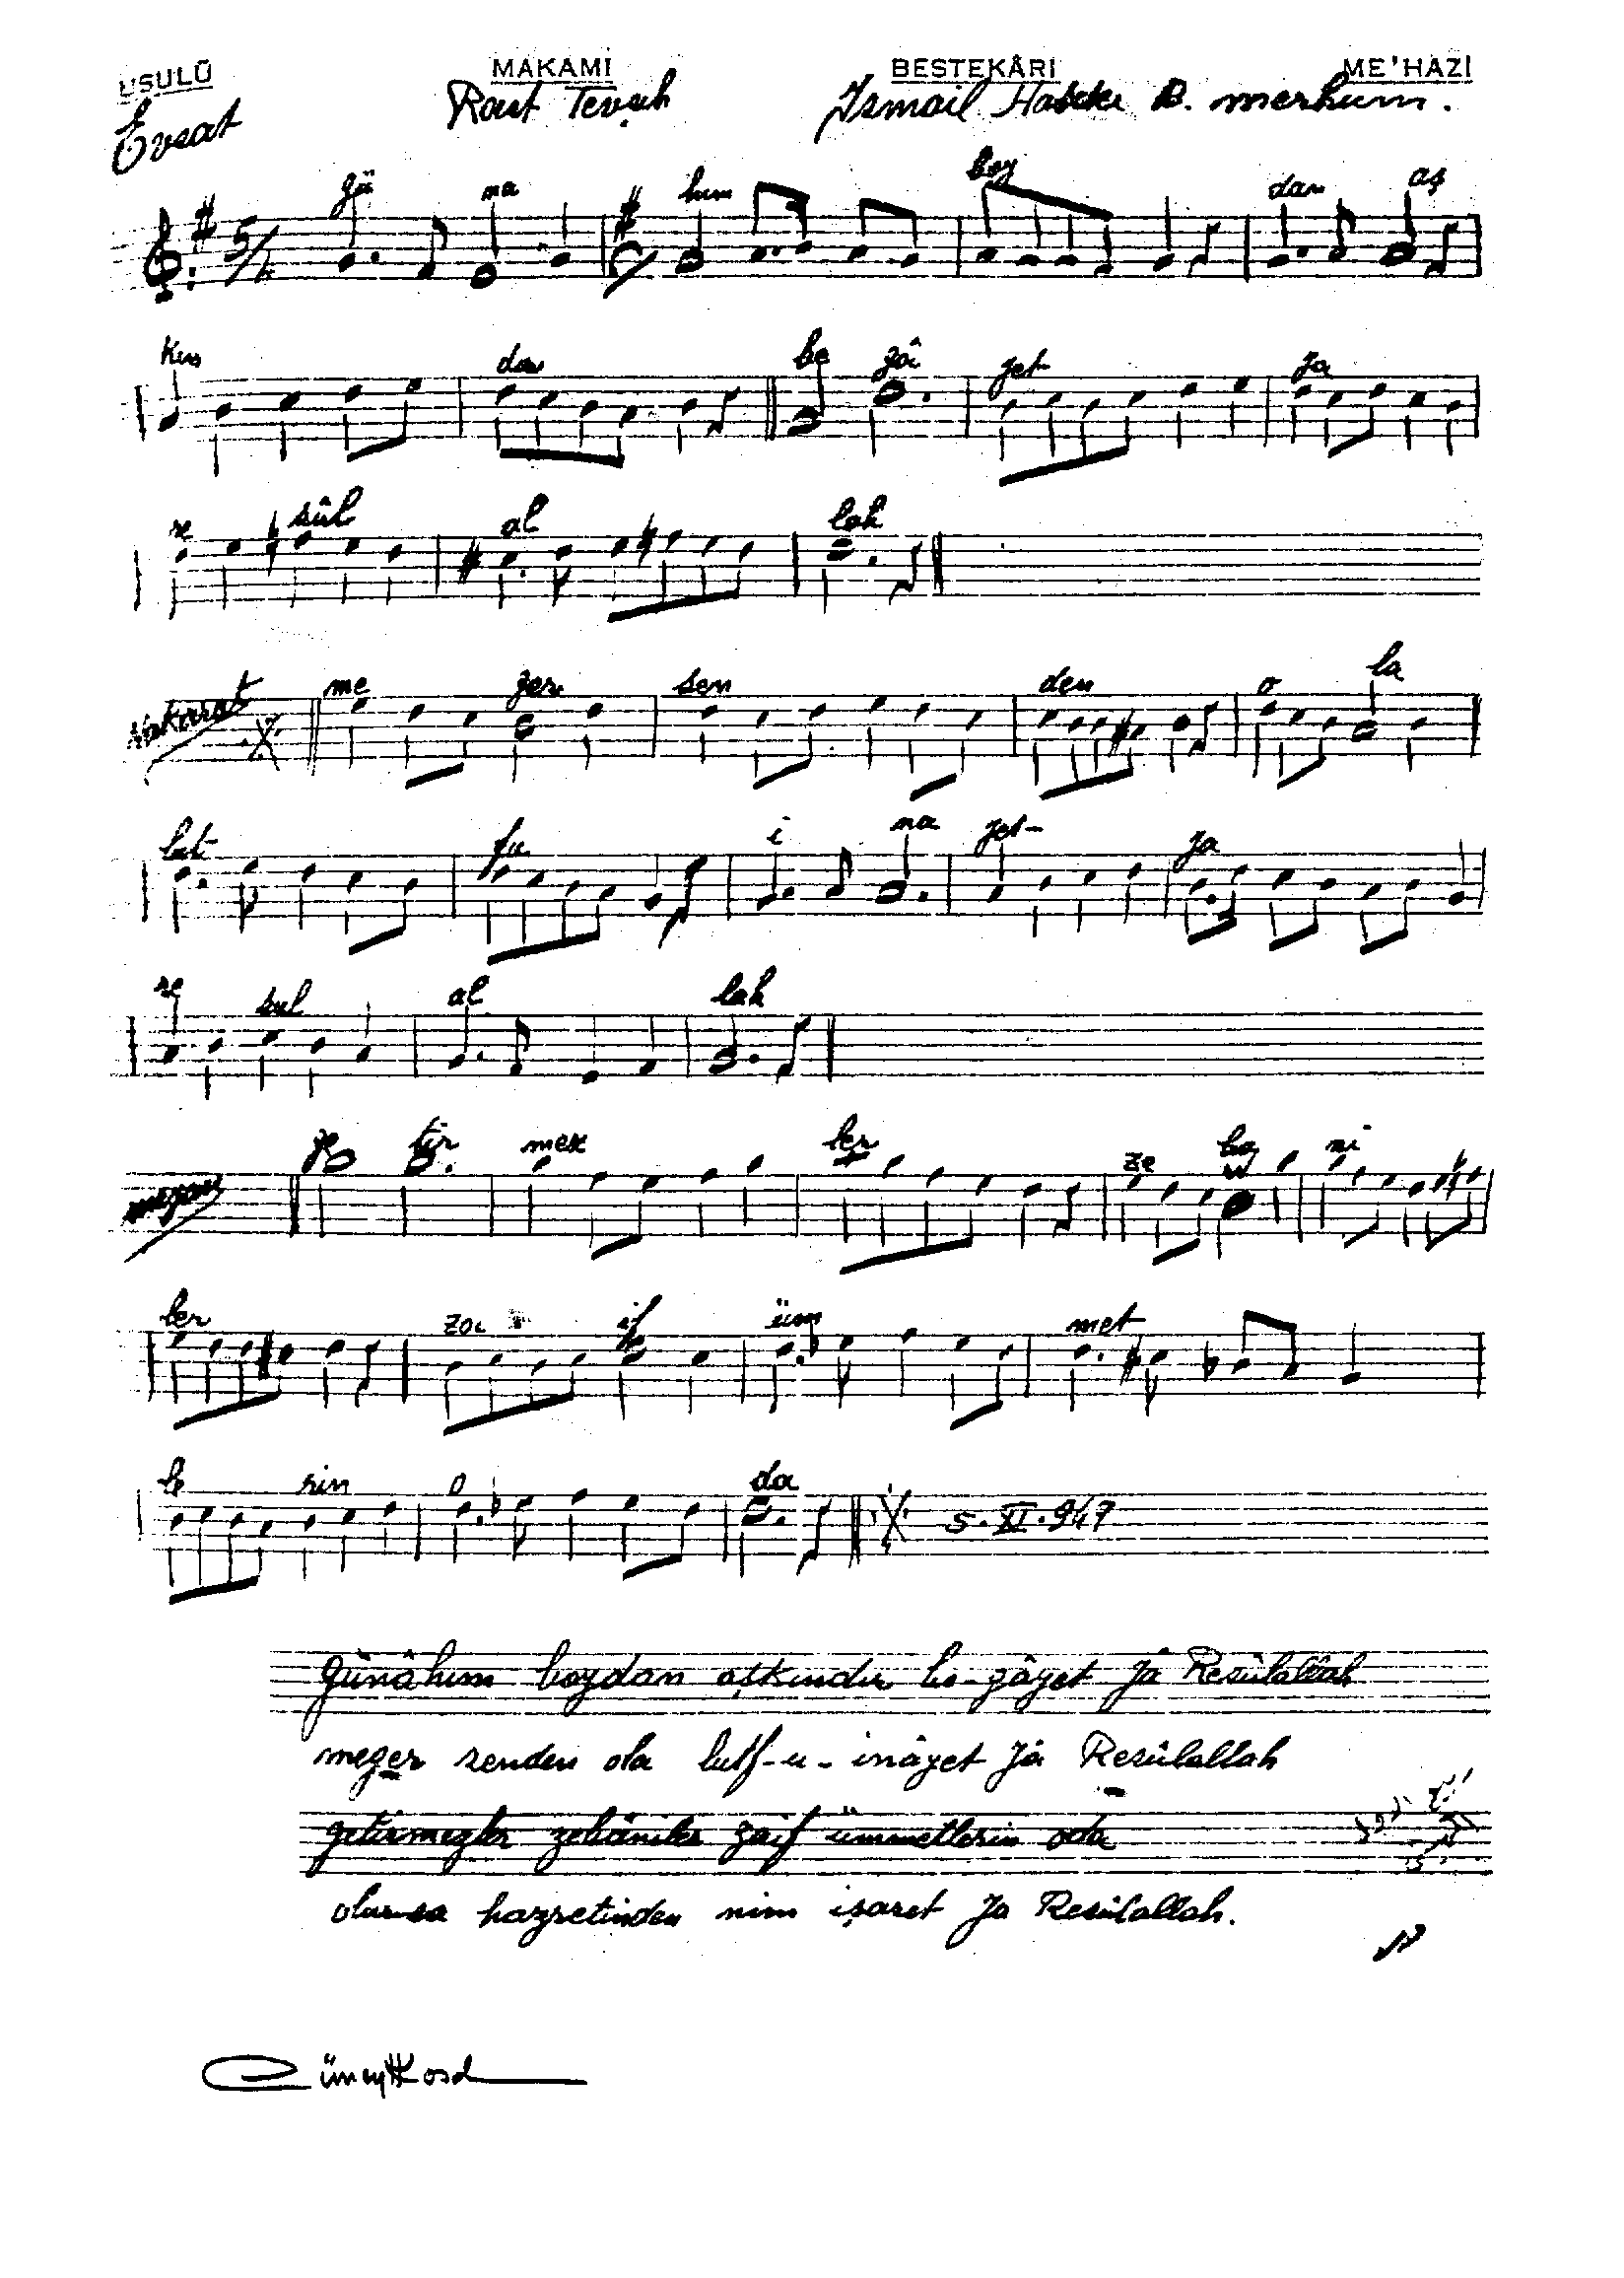 USULÜ MAKAMI BESTEKÂRI ME'HAZI
Evsat Rast Tevşih İsmail Hakkı B. merhum.
gü na hum boy dan aş
5/4
kın dır be gâ yet ja
re sûl al lah
Nakarat me ger sen den o la
lut fu i na yet- ja
re sul al lah
meyan ge tir mek ler ze ba ni
ler zai if üm met
le rin o da
5.XI.947
günâhım boydan aşkındır be-gâyet jâ Resûlallah
meger senden ola lutf-u-inâyet jâ Resûlallah
getirmegler zebâniler zaif ümmetlerin oda
olursa hazretinden nim işaret ja Resûlallah.
Cüneyt Kosal